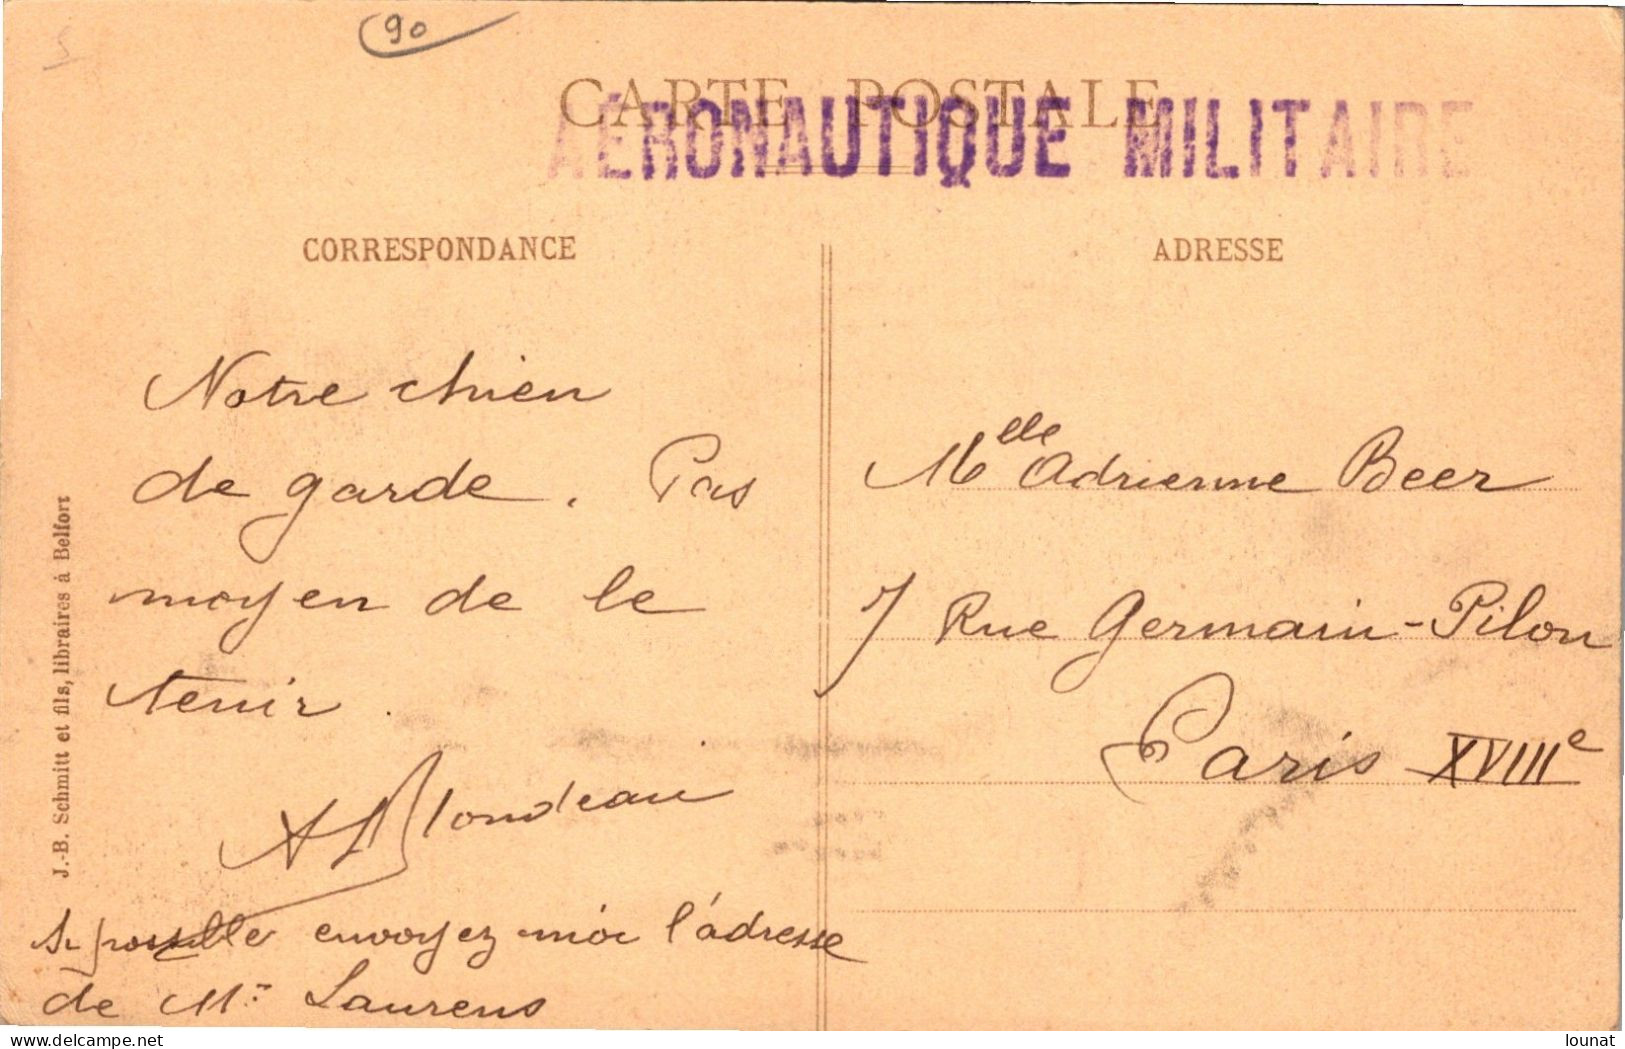 90
CARTE POSTALE
AÉRONAUTIQUE MILITAIRE
CORRESPONDANCE
Notre chien
de garde. Pas
moyen de le
tenir.
ABlondeau
si possible envoyez moi l'adresse
de Mr Laurens
ADRESSE
Melle Adrienne Beer
7 Rue Germain-Pilon
Paris XVIIIe
J.-B. Schmitt et fils, libraires à Belfort
delcampe.net
lounat